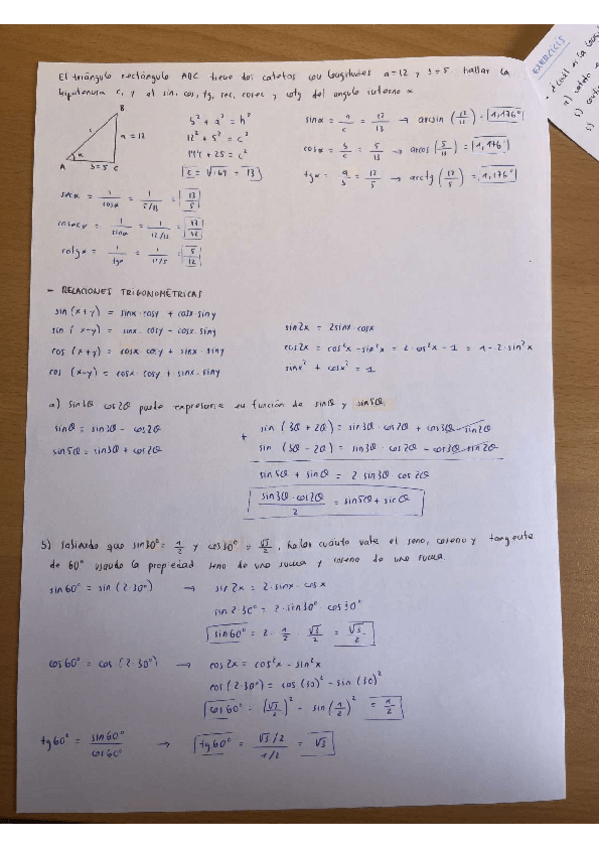 El triángulo rectángulo ABC tiene dos catetos con longitudes a=12 y b=5. Hallar la
hipotenusa c, y el sin, cos, tg, sec, cosec y cotg del angulo interno α
B
c
a = 12
α
A
b = 5
C
b² + a² = h²
12² + 5² = c²
144 + 25 = c²
c = √169 = 13
sinα = a/c = 12/13 → arcsin (12/13) = 1,176°
cosα = b/c = 5/13 → arcos (5/13) = 1,176°
tgα = a/b = 12/5 → arctg (12/5) = 1,176°
secα = 1/cosα = 1/5/13 = 13/5
cosecα = 1/sinα = 1/12/13 = 13/12
cotgα = 1/tgα = 1/12/5 = 5/12
- RELACIONES TRIGONOMÉTRICAS
sin (x+y) = sinx · cosy + cosx · siny
sin (x-y) = sinx · cosy - cosx · siny
cos (x+y) = cosx · cosy + sinx · siny
cos (x-y) = cosx · cosy + sinx · siny
sin2x = 2sinx · cosx
cos2x = cos²x - sin²x = 2·cos²x - 1 = 1 - 2·sin²x
sinx² + cosx² = 1
a) Sin3θ cos2θ puede expresarse en función de sinθ y sin5θ
sinθ = sin3θ - cos2θ
sin5θ = sin3θ + cos2θ
+ sin (3θ + 2θ) = sin3θ · cos2θ + cos3θ · sin2θ
sin (3θ - 2θ) = sin3θ · cos2θ - cos3θ · sin2θ
sin5θ + sinθ = 2 sin3θ cos2θ
sin3θ · cos2θ/2 = sin5θ + sinθ
5) Sabiendo que sin30° = 1/2 y cos30° = √3/2, hallar cuánto vale el seno, coseno y tangente
de 60° usando la propiedad seno de una suma y coseno de una suma.
sin60° = sin (2·30°) → sin2x = 2·sinx · cosx
sin2·30° = 2·sin30° cos30°
sin60° = 2 · 1/2 · √3/2 = √3/2
cos60° = cos (2·30°) → cos2x = cos²x - sin²x
cos (2·30°) = cos (30)² - sin (30)²
cos60° = (√3/2)² - sin (1/2)² = 1/2
tg60° = sin60°/cos60° → tg60° = √3/2/1/2 = √3
EXERCICIS